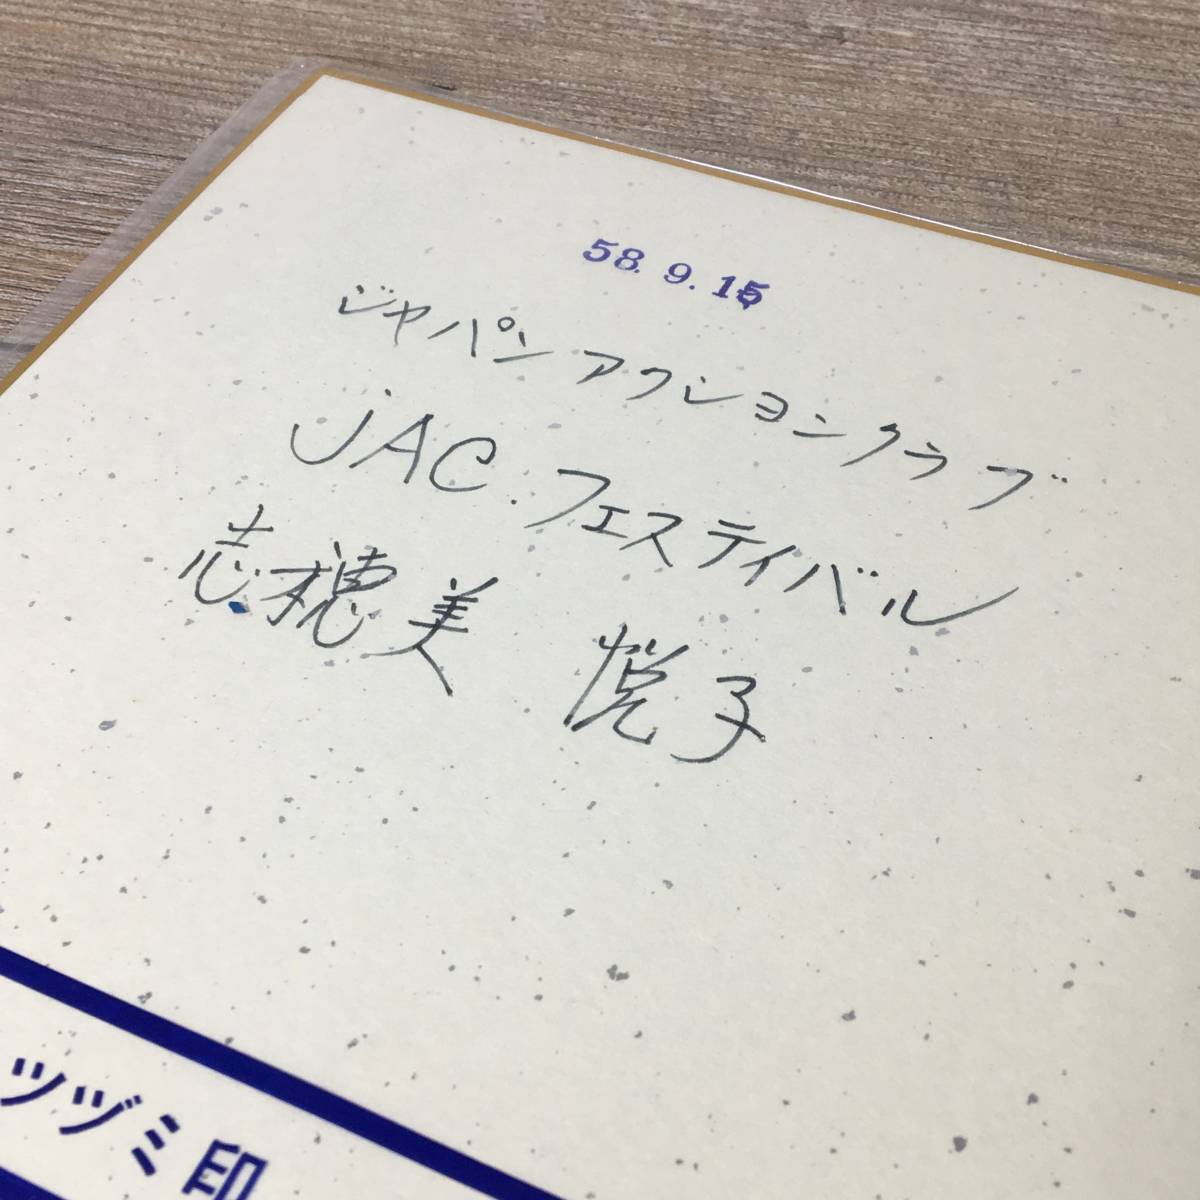 58.9.15
ジャパンアクションクラブ
JAC.フェスティバル
志穂美 悦子
ツヅミ印